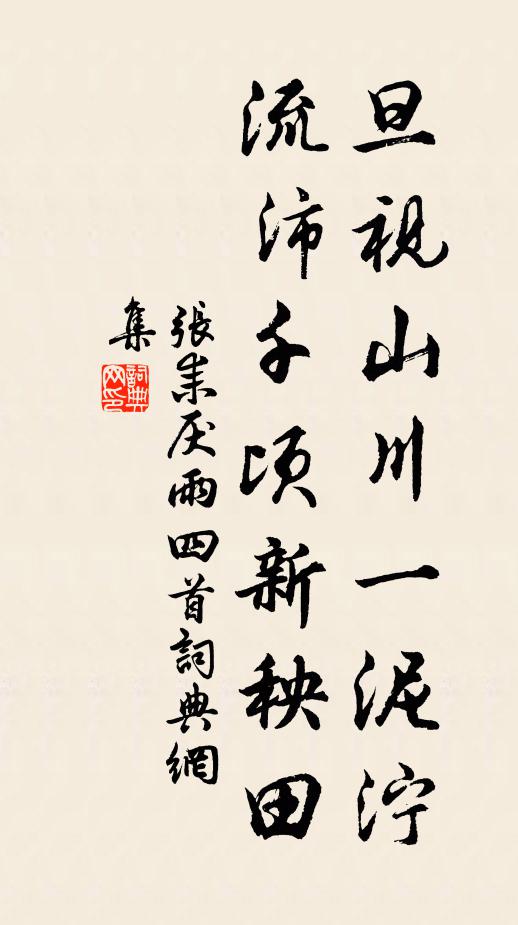 旦視山川一泥泞
流沛千頃新秧田
張耒厌雨四首詞典網
集
詞典网印